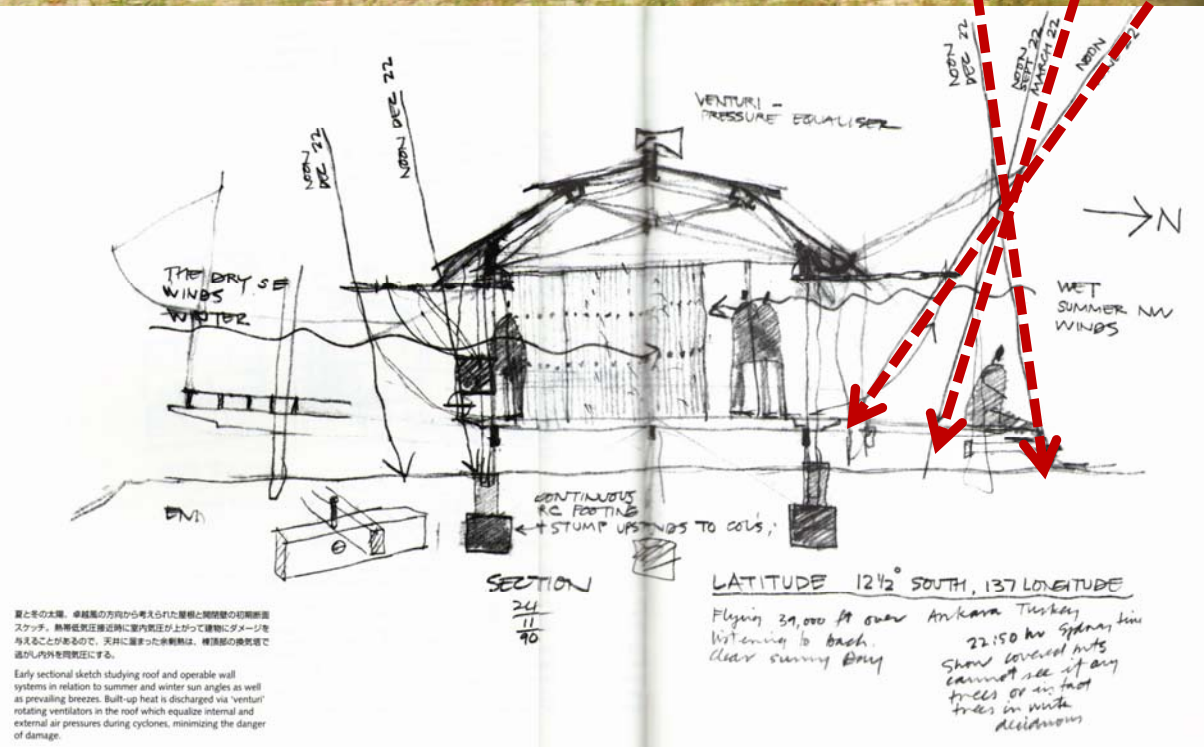 NOON
DEC 22
NOON
SEPT 22
MARCH 22
NOON
VENTURI -
PRESSURE EQUALISER
NOON
DEC 22
NOON DEC 22
N
THE DRY SE
WINDS
WINTER
WET
SUMMER NW
WINDS
END
CONTINUOUS
RC FOOTING
+ STUMP UPSTANDS TO COL'S,
SECTION
24
11
90
LATITUDE 12½° SOUTH, 137 LONGITUDE
Flying 39,000 ft over Ankara Turkey
listening to bach.
clear sunny Day
22:50 hr Sydney time
Snow covered mts
cannot see if any
trees or in fact
trees in
deciduous
夏と冬の太陽、卓越風の方向から考えられた屋根と開閉壁の初期断面
スケッチ。熱帯低気圧接近時に室内気圧が上がって建物にダメージを
与えることがあるので、天井に溜まった余剰熱は、棟頂部の換気塔で
逃がし内外を同気圧にする。
Early sectional sketch studying roof and operable wall
systems in relation to summer and winter sun angles as well
as prevailing breezes. Built-up heat is discharged via 'venturi'
rotating ventilators in the roof which equalize internal and
external air pressures during cyclones, minimizing the danger
of damage.